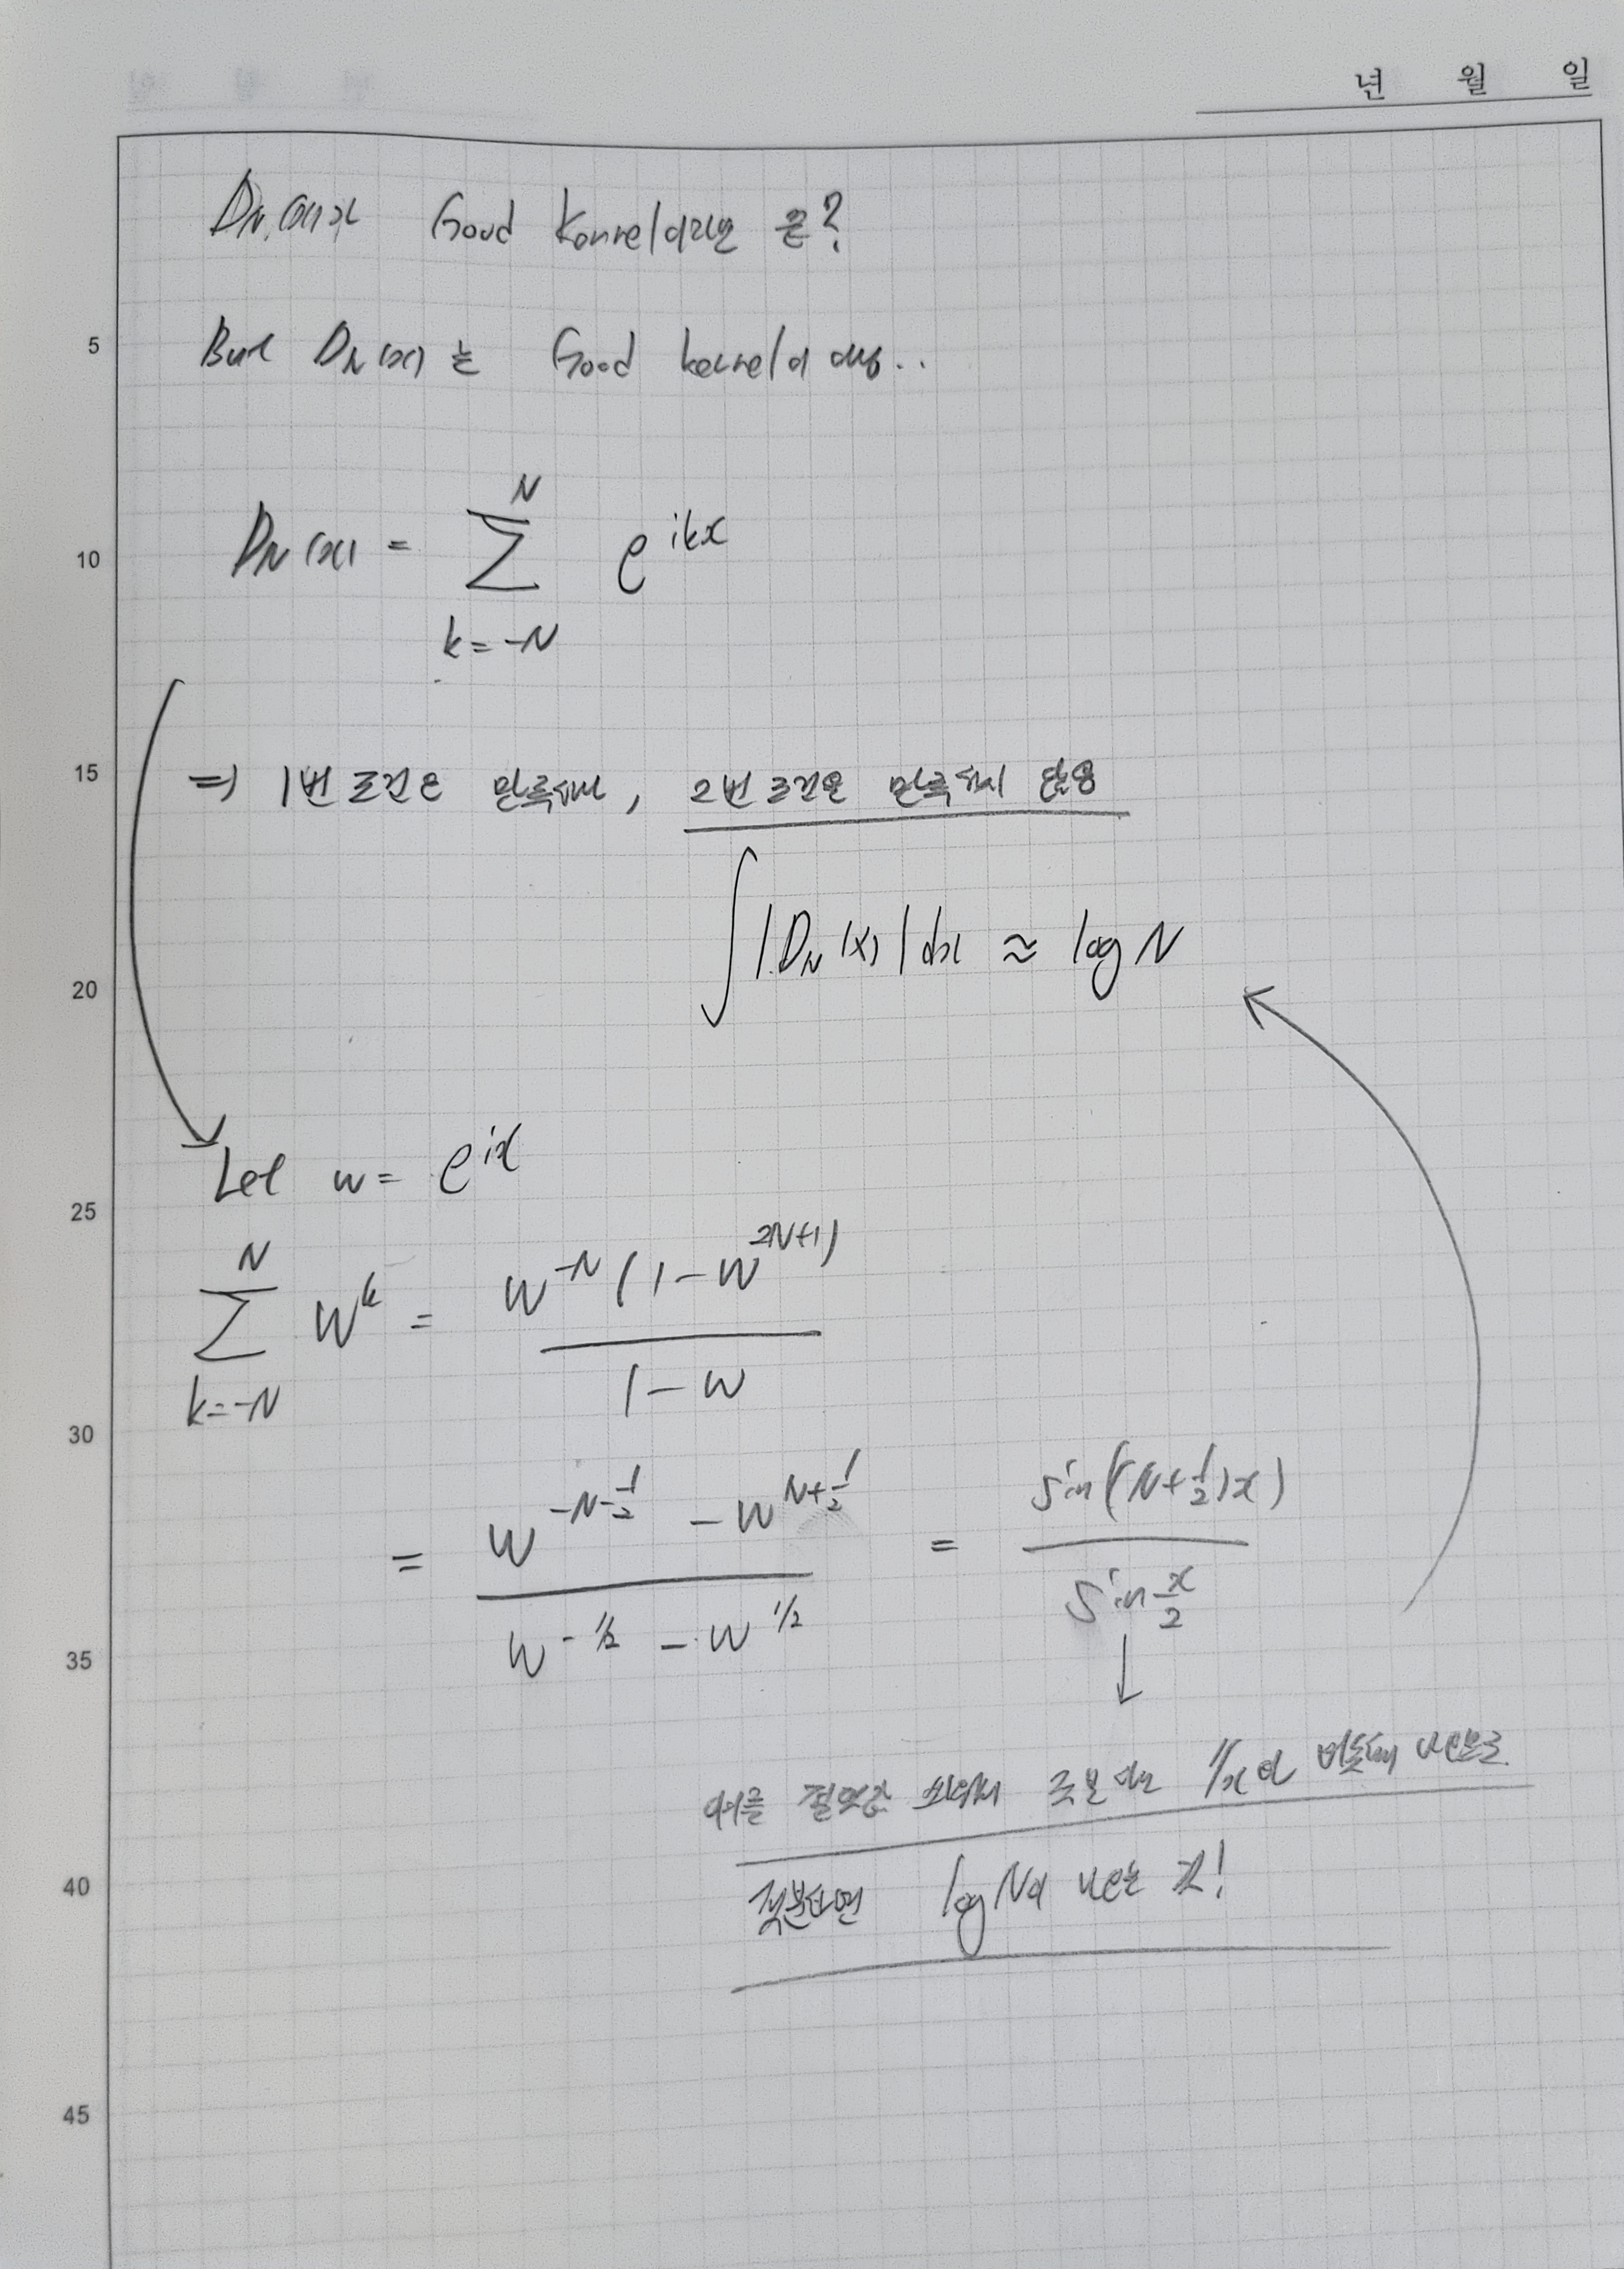 년 월 일
D_N(x)가 Good Kernel이라면 굳?
But D_N(x)는 Good kernel이 아님..
D_N(x) = \sum_{k=-N}^{N} e^{ikx}
⇒ 1번 조건은 만족하나, 2번 조건을 만족하지 않음
∫|D_N(x)|dx ≈ log N
Let w = e^{ix}
\sum_{k=-N}^{N} w^k = \frac{w^{-N}(1-w^{2N+1})}{1-w}
= \frac{w^{-N-\frac{1}{2}} - w^{N+\frac{1}{2}}}{w^{-1/2} - w^{1/2}} = \frac{sin((N+\frac{1}{2})x)}{sin\frac{x}{2}}
↓
이를 절댓값 1/x에 비슷해 지므로
적분하면 log N이 나오는 것!
5
10
15
20
25
30
35
40
45